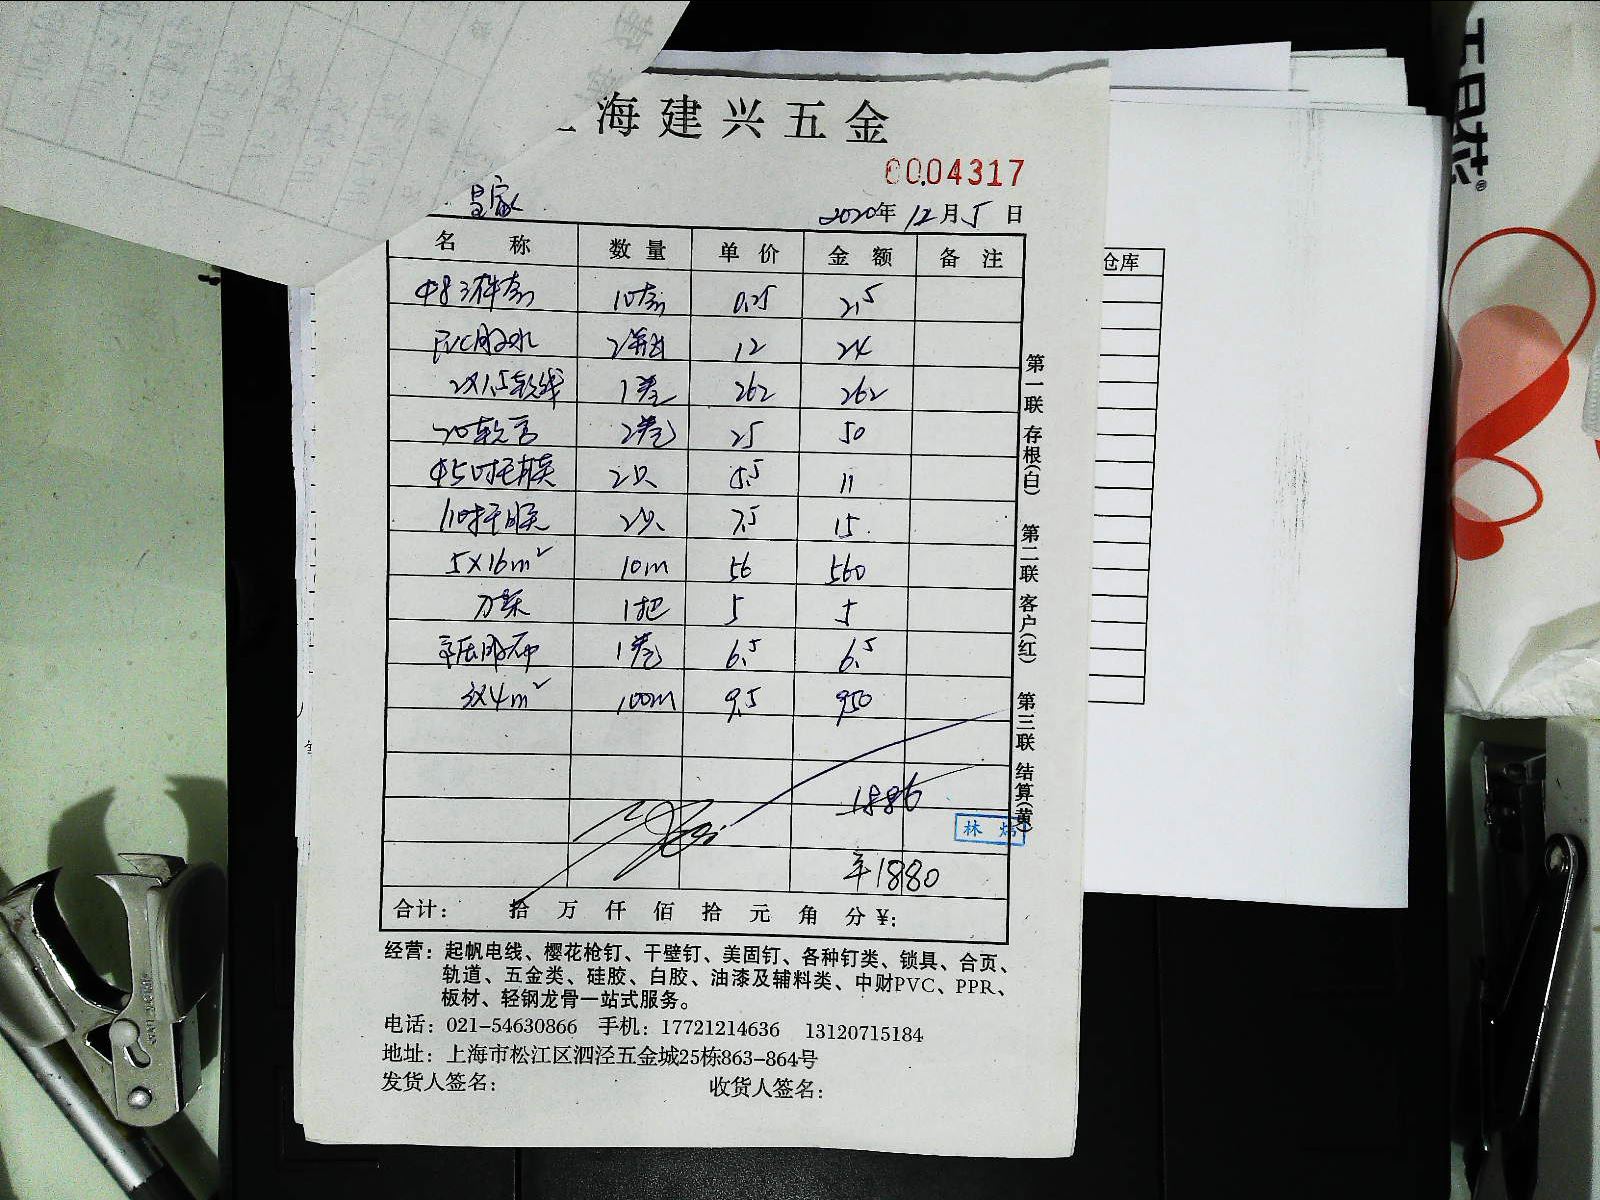 海建兴五金
0004317
皇家
2020年12月5日
名 称 数量 单价 金额 备注
φ8 3件套 10套 0.25 2.5
PVC胶水 2瓶 12 24
2X1.5软线 1卷 262 262
20软管 2卷 25 50
2只 5.5 11
2只 7.5 15
5X16m² 10m 56 560
1把 5 5
1卷 6.5 6.5
3X4m² 100m 9.5 950
1886
林炜
¥1880
合计: 拾 万 仟 佰 拾 元 角 分 ¥:
第一联 存根(白) 第二联 客户(红) 第三联 结算(黄)
经营: 起帆电线、樱花枪钉、干壁钉、美固钉、各种钉类、锁具、合页、
轨道、五金类、硅胶、白胶、油漆及辅料类、中财PVC、PPR、
板材、轻钢龙骨一站式服务。
电话: 021-54630866 手机: 17721214636 13120715184
地址: 上海市松江区泗泾五金城25栋863-864号
发货人签名: 收货人签名:
仓库